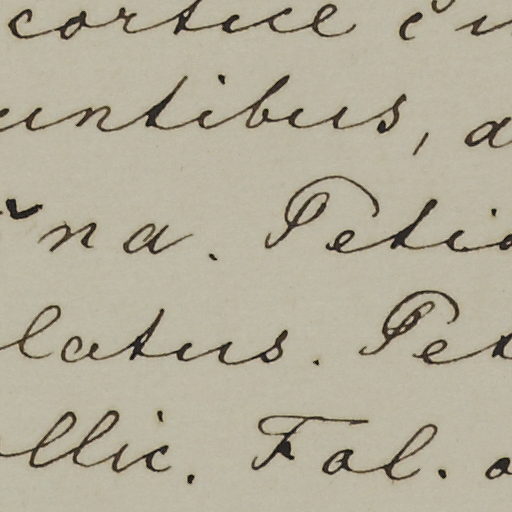 cortice
untibus, a
na. Petio
latus. Pet
llic. Fol. o